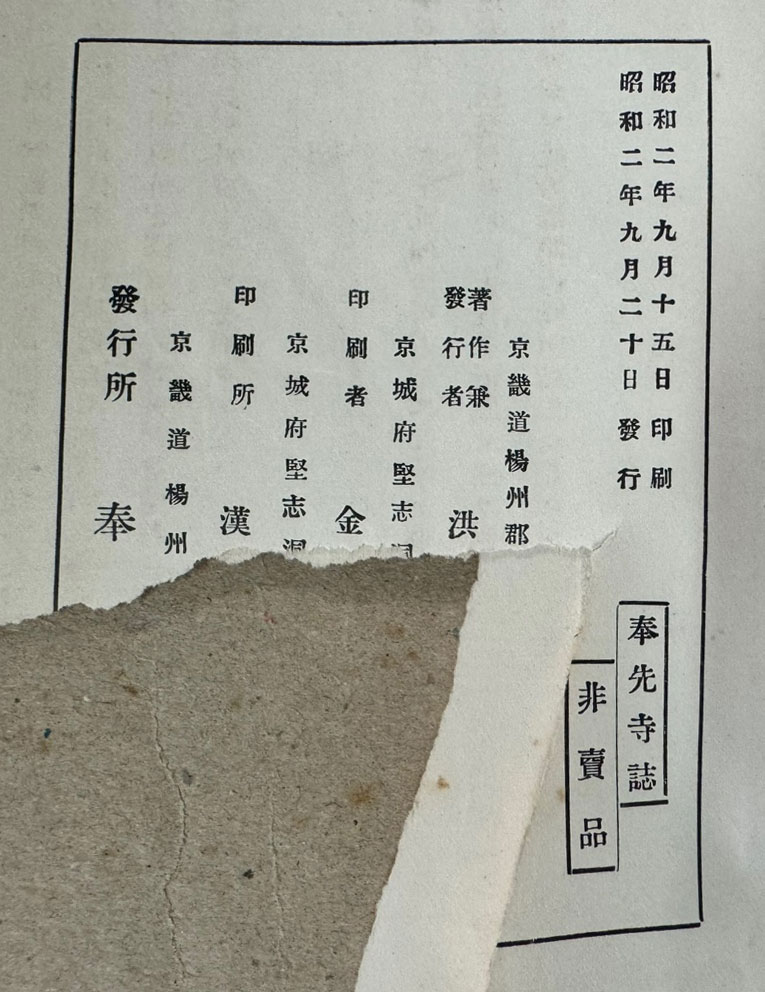 昭和二年九月十五日印刷
昭和二年九月二十日發行
奉先寺誌
非賣品
京畿道楊州郡
著作兼
發行者
洪
京城府堅志
印刷者
金
京城府堅志洞
印刷所
漢
京畿道楊州
發行所
奉